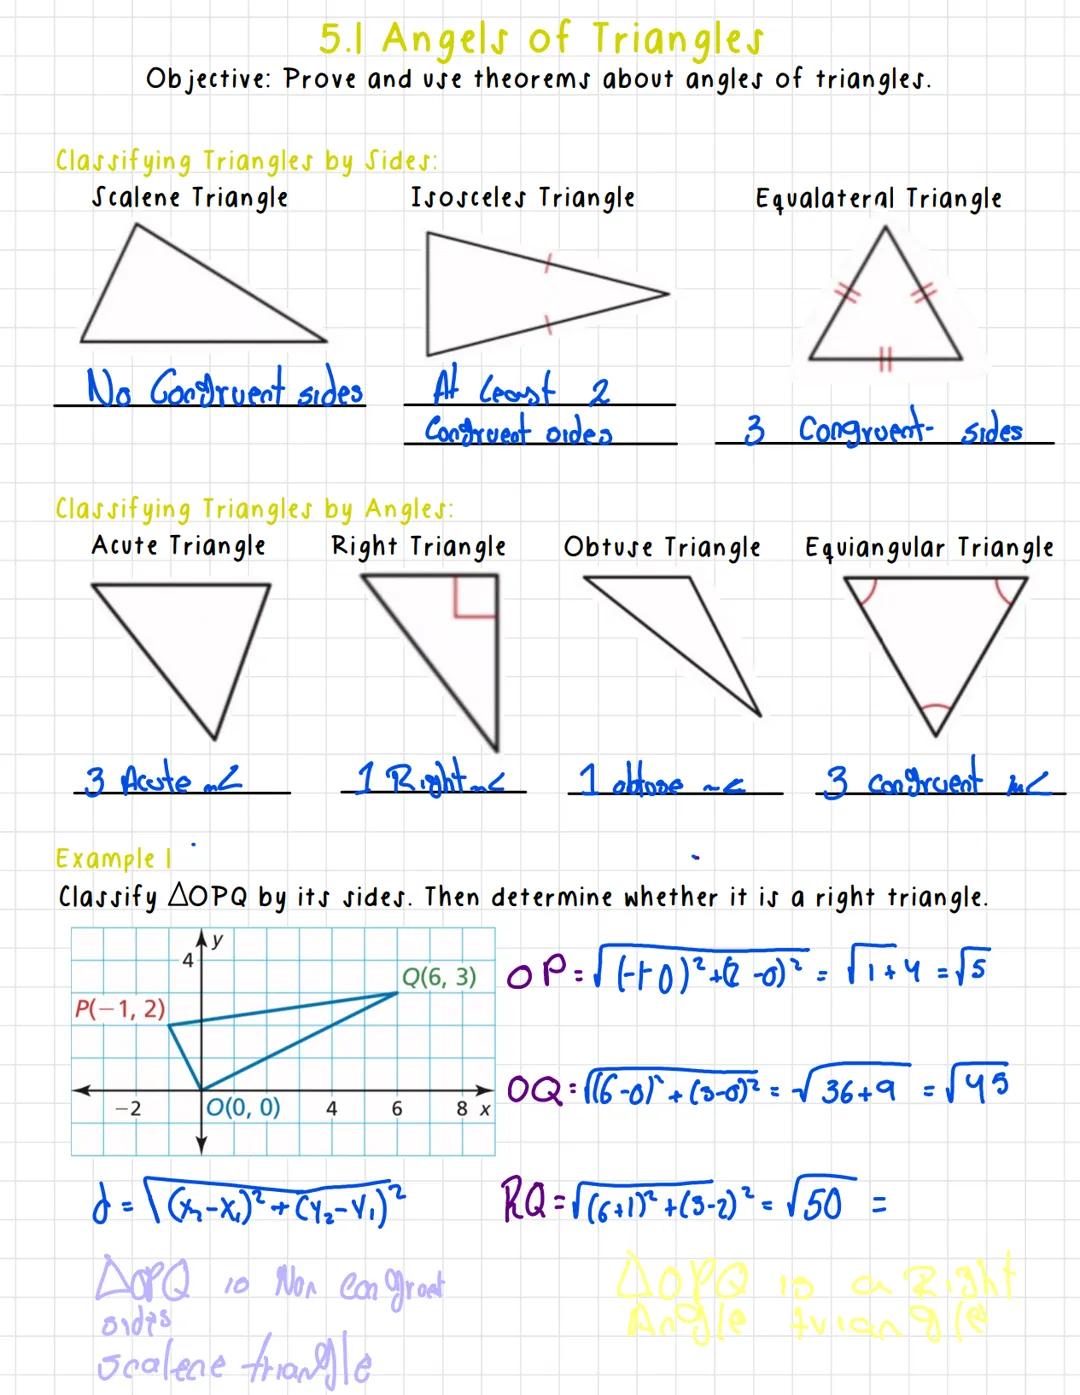 5.1 Angels of Triangles
Objective: Prove and use theorems about angles of triangles.
Classifying Triangles by Sides:
Scalene Triangle Isosceles Triangle Equalateral Triangle
No Congruent sides At Least 2
Congruent sides 3 Congruent sides
Classifying Triangles by Angles:
Acute Triangle Right Triangle Obtuse Triangle Equiangular Triangle
3 Acute m∠ 1 Right m∠ 1 obtuse m∠ 3 congruent m∠
Example 1
Classify △OPQ by its sides. Then determine whether it is a right triangle.
y
4
Q(6, 3)
P(−1, 2)
−2 O(0, 0) 4 6 8 x
OP=√(-1-0)²+(2-0)² = √1+4 = √5
OQ=√(6-0)²+(3-0)² = √36+9 = √45
d=√(x₂-x₁)²+(y₂-y₁)²
RQ=√(6+1)²+(3-2)² = √50 =
△OPQ is Non Congruent
sides
scalene triangle
△OPQ is a Right
Angle triangle